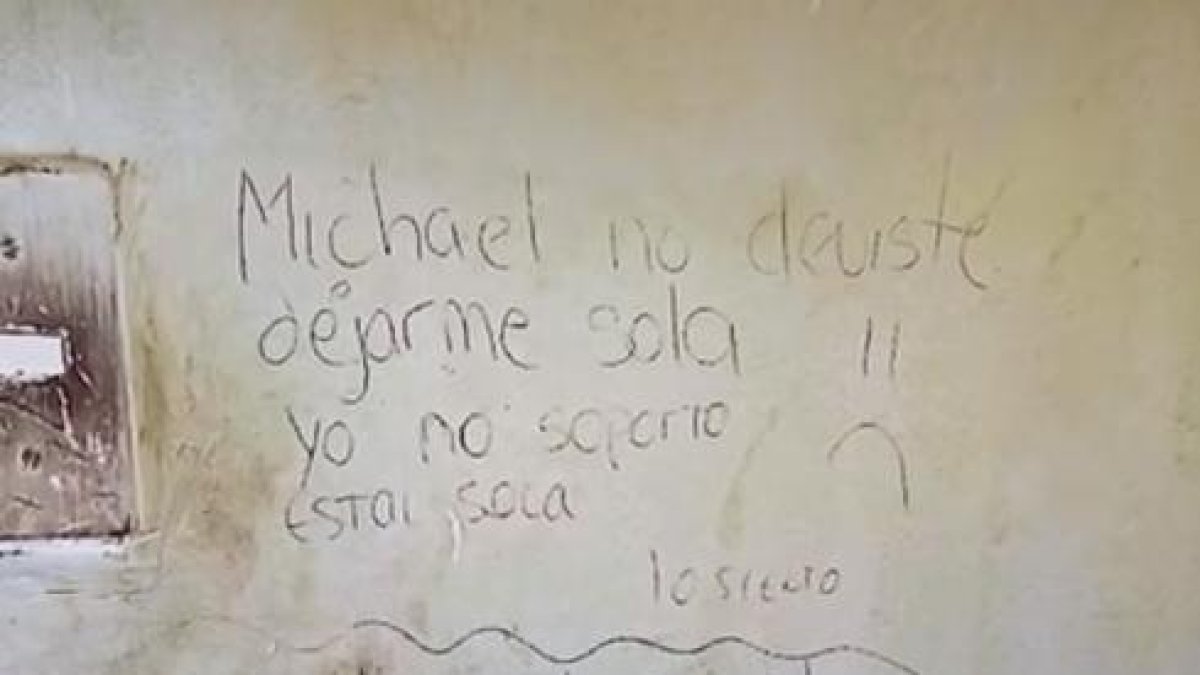 Michael no deviste
dejarme sola
yo no soporto
Estar sola
lo siento